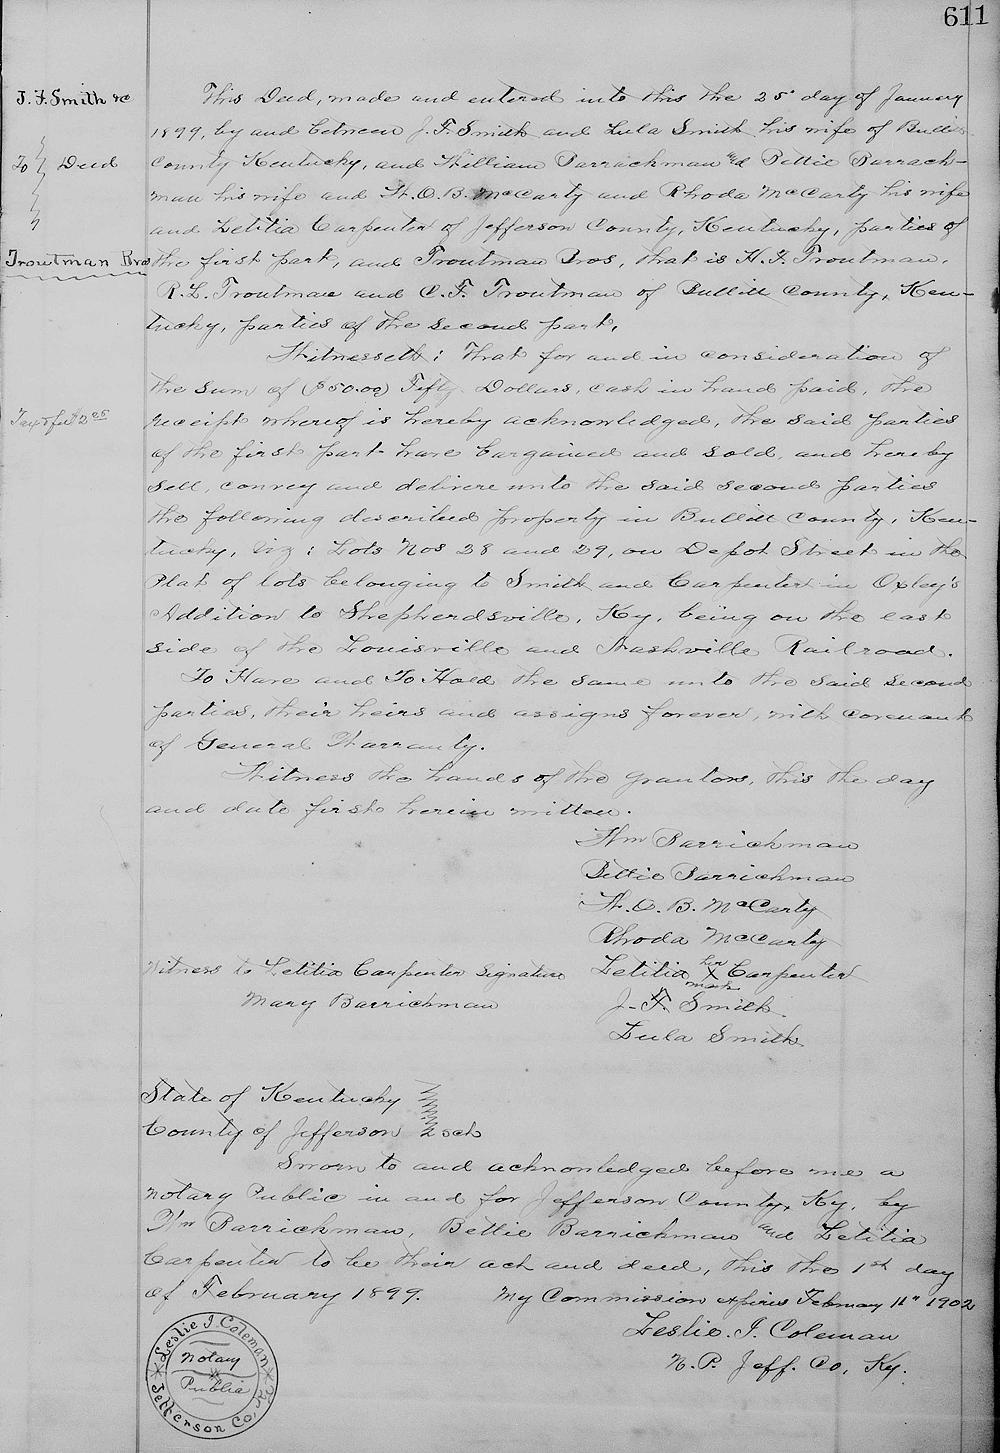 611
J. F. Smith &c
To Deed
Troutman Bros
Tax & fee $2 05
This Deed, made and entered into this the 25" day of January
1899, by and between J. F. Smith and Lula Smith his wife of Bullitt
County Kentucky, and William Barrackman and Bettie Barrack-
man his wife and W. O. B. McCarty and Rhoda McCarty his wife
and Letitia Carpenter of Jefferson County, Kentucky, parties of
the first part, and Troutman Bros, that is H. F. Troutman,
R. L. Troutman and C. F. Troutman of Bullitt County, Ken-
tucky, parties of the second part,
Witnesseth: That for and in consideration of
the sum of ($50.00) Fifty Dollars, cash in hand paid, the
receipt whereof is hereby acknowledged, the said parties
of the first part have bargained and sold, and hereby
sell, convey and delivere unto the said second parties
the following described property in Bullitt County, Ken-
tucky, viz: Lots Nos 28 and 29, on Depot Street in the
Plat of lots belonging to Smith and Carpenter in Oxley's
Addition to Shepherdsville, Ky, being on the east
side of the Louisville and Nashville Railroad.
To Have and To Hold the same unto the said second
parties, their heirs and assigns forever, with covenant
of General Warranty.
Witness the hands of the grantors, this the day
and date first herein written.
Wm Barrichman
Bettie Barrichman
W. O. B. McCarty
Rhoda McCarty
Witness to Letitia Carpenter Signature
Mary Barrichman
Letitia her X mark Carpenter
J. F. Smith
Lula Smith
State of Kentucky
County of Jefferson sct
Sworn to and acknowledged before me a
Notary Public in and for Jefferson County, Ky, by
Wm Barrichman, Bettie Barrichman and Letitia
Carpenter to be their act and deed, this the 1st day
of February 1899. My Commission expires February 11" 1902
Leslie. J. Coleman
N. P. Jeff. Co, Ky.
Leslie J. Coleman
Notary
Public
Jefferson Co, Ky